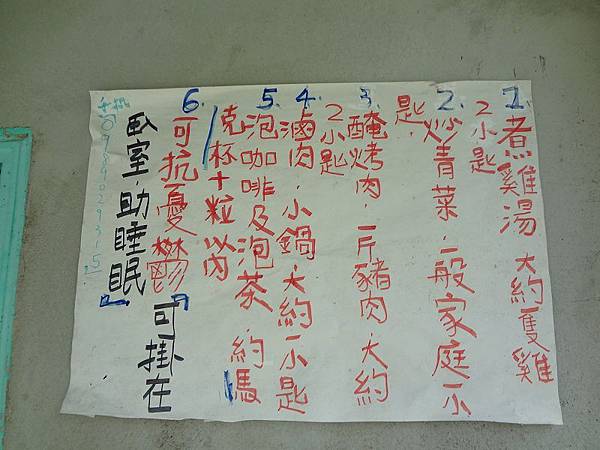 1.煮雞湯 大約隻雞
2小匙
2.炒青菜.一般家庭小
匙.
3.醃烤肉.一斤豬肉.大約
2小匙
4.滷肉.小鍋.大約一小匙
5.泡咖啡及泡茶.約馬
克杯十粒以內
6.可抗憂鬱「可掛在
臥室.助睡眠」